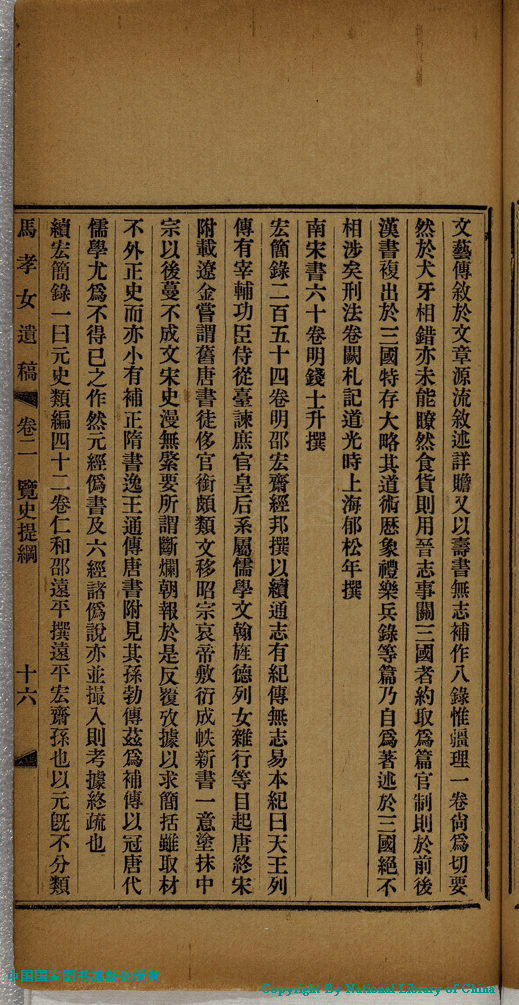 文藝傳敘於文章源流敘述詳贍又以壽書無志補作八錄惟疆理一卷尙爲切要
然於犬牙相錯亦未能瞭然食貨則用晉志事關三國者約取爲篇官制則於前後
漢書複出於三國特存大略其道術歷象禮樂兵錄等篇乃自爲著述於三國絕不
相涉矣刑法卷闕札記道光時上海郁松年撰
南宋書六十卷明錢士升撰
宏簡錄二百五十四卷明邵宏齋經邦撰以續通志有紀傳無志易本紀曰天王列
傳有宰輔功臣侍從臺諫庶官皇后系屬儒學文翰旌德列女雜行等目起唐終宋
附載遼金嘗謂舊唐書徒侈官銜頗類文移昭宗哀帝敷衍成帙新書一意塗抹中
宗以後蔓不成文宋史漫無緊要所謂斷爛朝報於是反覆攷據以求簡括雖取材
不外正史而亦小有補正隋書逸王通傳唐書附見其孫勃傳茲爲補傳以冠唐代
儒學尤爲不得已之作然元經僞書及六經諸僞說亦並撮入則考據終疏也
續宏簡錄一曰元史類編四十二卷仁和邵遠平撰遠平宏齋孫也以元旣不分類
馬孝女遺稿 卷二 覽史提綱 十六
中国国家图书馆版权所有
Copyright By National Library of China